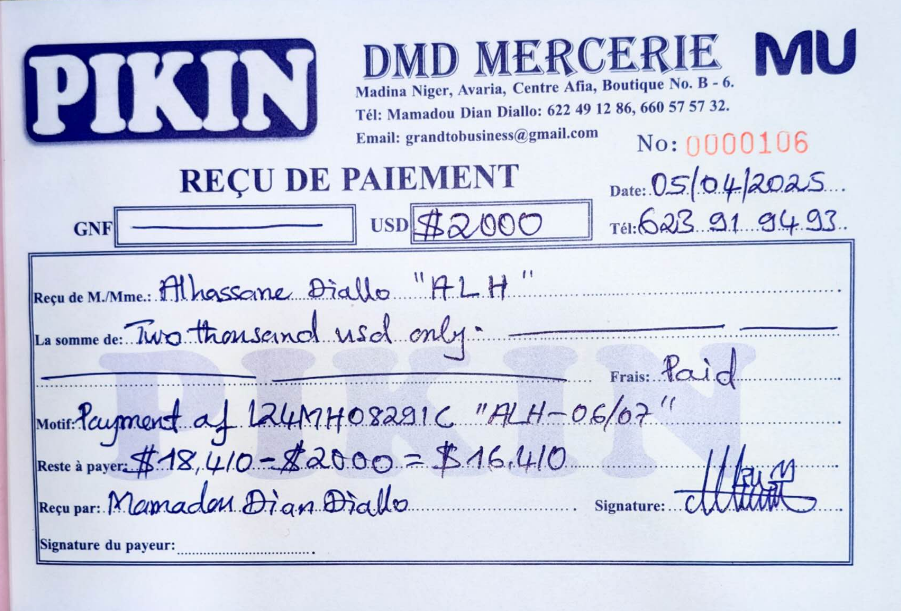 PIKIN
DMD MERCERIE
MU
Madina Niger, Avaria, Centre Afia, Boutique No. B - 6.
Tél: Mamadou Dian Diallo: 622 49 12 86, 660 57 57 32.
Email: grandtobusiness@gmail.com
No: 0000106
REÇU DE PAIEMENT
Date: 05/04/2025
GNF
USD $2000
Tél: 623 91 94 93
Reçu de M./Mme.: Alhassane Diallo "ALH"
La somme de: Two thousand usd only.
Frais: Paid
Motif: Payment of L24MH08291C "ALH-06/07"
Reste à payer: $18,410 - $2000 = $16,410
Reçu par: Mamadou Dian Diallo
Signature:
Signature du payeur:
PIKIN